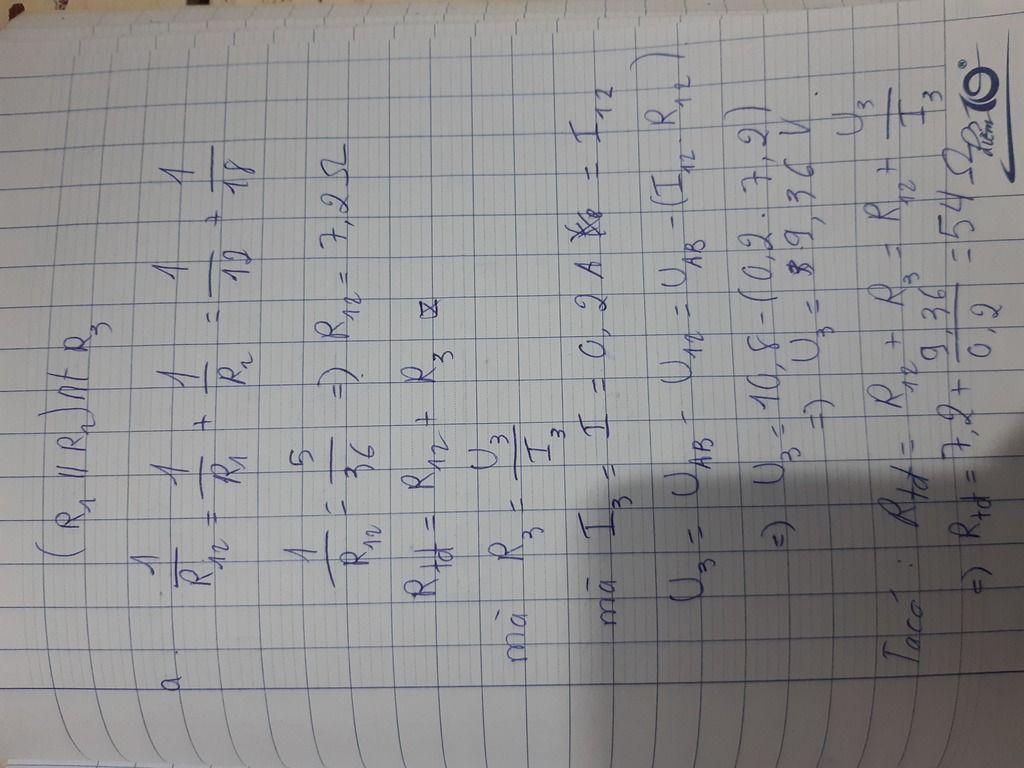 (R1 // R2) nt R3
a. 1/R12 = 1/R1 + 1/R2 = 1/12 + 1/18
1/R12 = 5/36 => R12 = 7,2 Ω
Rtđ = R12 + R3
mà R3 = U3/I3
mà I3 = I = 0,2 A = I12
U3 = UAB - U12 = UAB - (I12 . R12)
=) U3 = 10,8 - (0,2 . 7,2)
=) U3 = 9,36 V
Ta có : Rtđ = R12 + R3 = R12 + U3/I3
=) Rtđ = 7,2 + 9,36/0,2 = 54 Ω
điểm 10